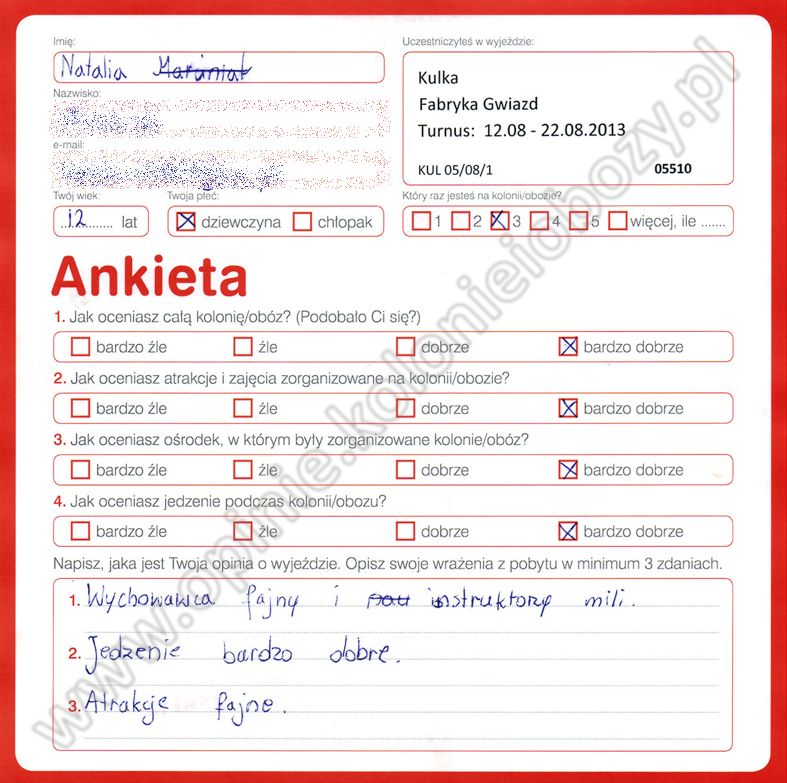 Imię:
Natalia
Uczestniczyłeś w wyjeździe:
Kulka
Fabryka Gwiazd
Turnus: 12.08 - 22.08.2013
KUL 05/08/1 05510
Nazwisko:
e-mail:
Twój wiek:
12 lat
Twoja płeć:
dziewczyna chłopak
Który raz jesteś na kolonii/obozie?
1 2 3 4 5 więcej, ile .......
Ankieta
1. Jak oceniasz całą kolonię/obóz? (Podobało Ci się?)
bardzo źle źle dobrze bardzo dobrze
2. Jak oceniasz atrakcje i zajęcia zorganizowane na kolonii/obozie?
bardzo źle źle dobrze bardzo dobrze
3. Jak oceniasz ośrodek, w którym były zorganizowane kolonie/obóz?
bardzo źle źle dobrze bardzo dobrze
4. Jak oceniasz jedzenie podczas kolonii/obozu?
bardzo źle źle dobrze bardzo dobrze
Napisz, jaka jest Twoja opinia o wyjeździe. Opisz swoje wrażenia z pobytu w minimum 3 zdaniach.
1. Wychowawca fajny i instruktorzy mili.
2. Jedzenie bardzo dobre.
3. Atrakcje fajne.
www.opinie.kolonieiobozy.pl